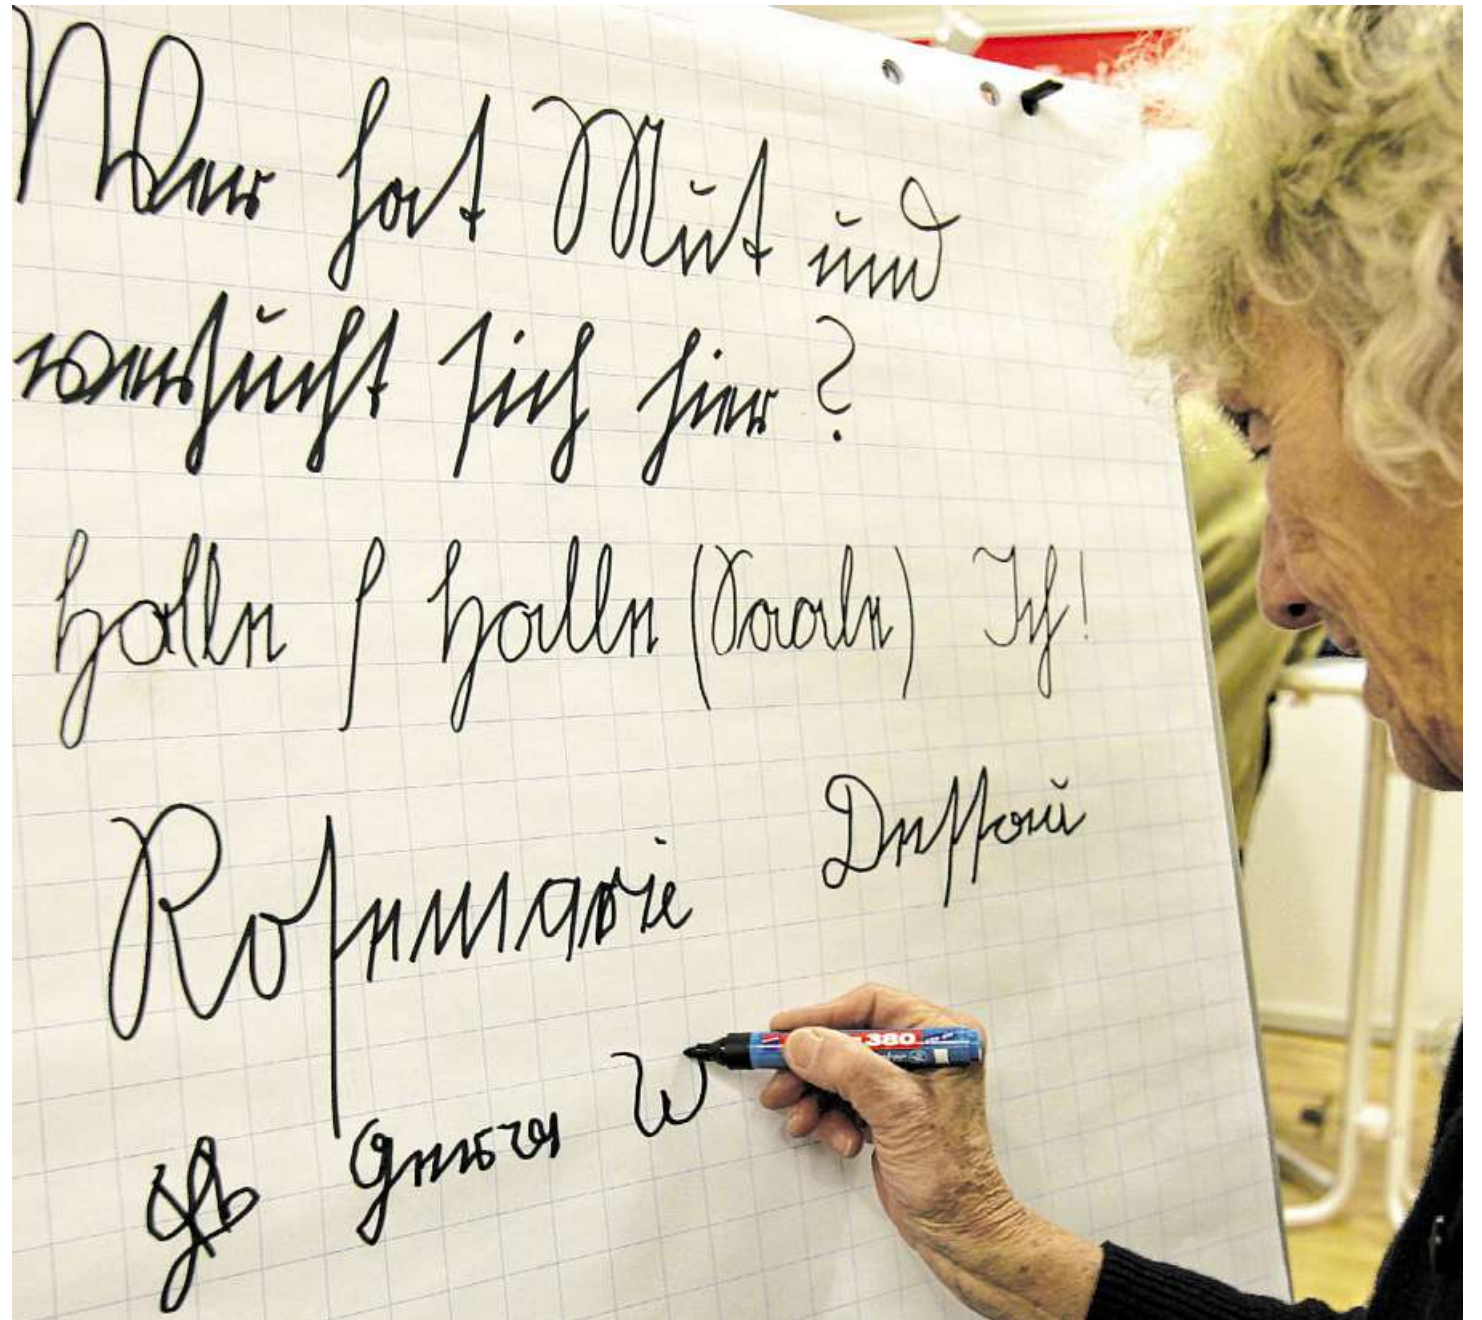 Wer hat Mut und
versucht sich hier?
Halle ſ Halle (Saale) Ich!
Rosemarie Dessau
W
380